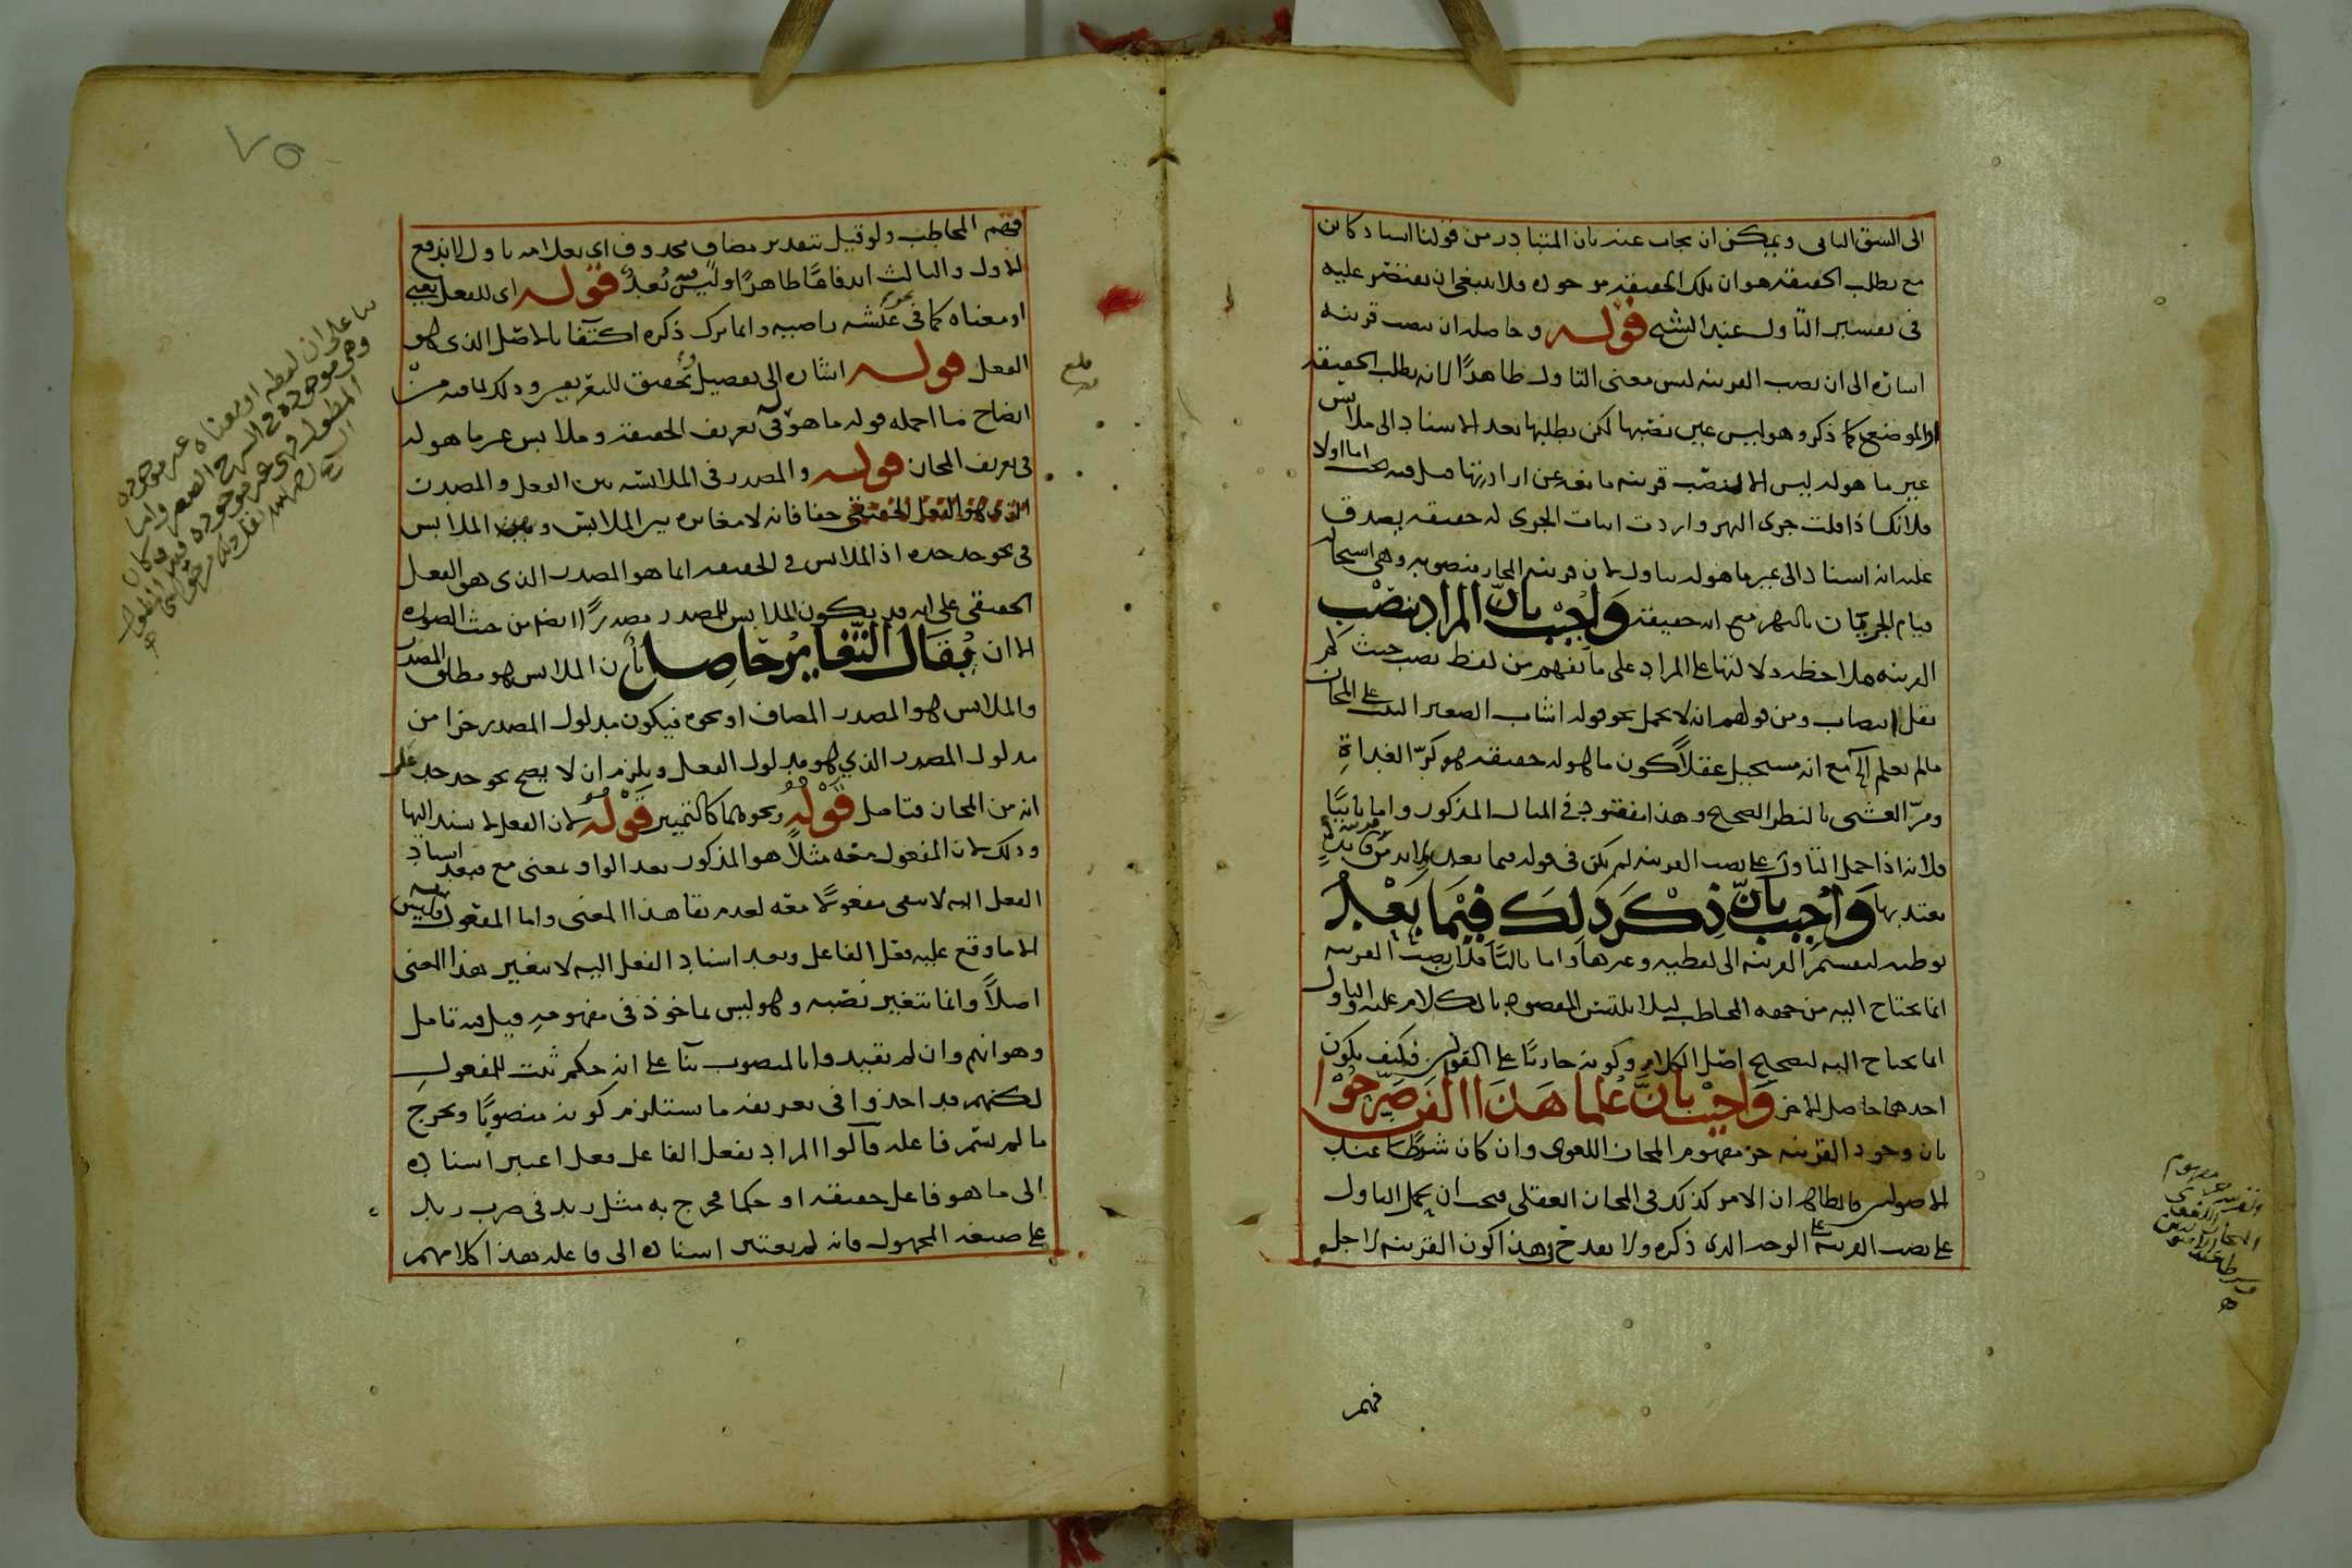 الى الشق الثانى ويمكن ان يجاب عنه بان المتبادر من قولنا اسناد كائن
مع تطلب الحقيقة هو ان تلك الحقيقة موجوده فلا ينبغى ان يقتصر عليه
فى تفسير التاول عند الشيخ قوله وحاصله ان ينصب قرينه
اشارة الى ان نصب القرينه ليس معنى التاول ظاهرًا لانه تطلب الحقيقه
او الموضع كما ذكر وهو ليس عين نصبها لكن تطلبها بعد الاسناد الى ملابس
غير ما هو له ليس الا لنصب قرينه مانعه عن ارادتها قيل فيه بحث اما اولا
فلانك اذا قلت جرى النهر واردت اثبات الجرى له حقيقه يصدق
عليه انه اسناد الى غير ما هو له بتاول لان قرينه المجاز منصوبه وهى استحاله
قيام الجريان بالنهر مع انه حقيقة وَاُجيب بانّ المراد بنصب
القرينه ملاحظه دلالتها على المراد على ما يفهم من لفظ نصب حيث لم
يقل انتصاب ومن قولهم انه لا يحمل نحو قوله اشاب الصغير البيت على المجاز
مالم يعلم الى مع انه مستحيل عقلاً كون ما هو له حقيقه هو كرّ الغداةِ
ومرّ العشى بالنظر الصحيح وهذا مفقود فى المثال المذكور واما ثانيًا
فلانه اذا حمل التاول على نصب القرينه لم يكن فى قوله فيما بعد ولابد من قرينة فائدةٍ
يعتد بها وَاُجيب بانّ ذِكْرَ ذلِكَ فِيْمَا بَعْد
توطئه لتقسيم القرينه الى لفظيه وغيرها واما ثالثًا فلان نصب القرينه
انما يحتاج اليه من جهه المخاطب ليلا يلتبس المقصود بالكلام عليه والتاول
انما يحتاج اليه لتصحيح اصل الكلام وكونه جاريًا على القوانين فكيف يكون
احدهما حاصل الاخر وَاُجِيْبَ بانَّ عُلما هَذَا الفَن صَرّحُوْا
بان وجود القرينه جز مفهوم المجاز اللغوى وان كان شرطا عند
الاصولين فالظاهر ان الامر كذلك فى المجاز العقلى فيجب ان يحمل التاول
على نصب القرينه على الوجه الذى ذكره ولا يقدح فى هذا كون القرينه لاجل
فهم
والقرينه جز مفهوم
المجاز اللغوى
فهم المخاطب ولو قيل بتقدير مضاف محذوف اى بعلامه تاول لاندفع
الاول والثالث اندفاعًا ظاهرًا وليس فيه بُعد قوله اى للفعل يعنى
او معناه كما فى نحو عيشه راضيه وانما ترك ذكره اكتفا بالاصل الذى هو
الفعل قوله اشاره الى تفصيل وتحقيق للتعريفين وذلك لما فيه من
ايضاح ما اجمله قوله ما هو فى تعريف الحقيقة وملابس غير ما هو له
فى تعريف المجاز قوله والمصدر فى الملابسه بين الفعل والمصدر
الذى هو الفعل الحقيقى خفا فانه لا مغايره بين الملابس وبين الملابس
فى نحو جد جده اذ الملابس فى الحقيقه انما هو المصدر الذى هو الفعل
الحقيقى على انه قد يكون الملابس للمصدر مصدرًا ايضا من حيث الصوره
الا ان يُقَال التّغايرُ حَاصِل بأن الملابس هو مطلق المصدر
والملابس هو المصدر المضاف او نحوه فيكون مدلول المصدر جزا من
مدلول المصدر الذي هو مدلول الفعل ويلزم ان لا يصح نحو جد جد على
انه من المجاز فتامل قَوْلُهُ ونحوهما كالتمييز قَوْلُهُ لان الفعل لا يسند اليها
وذلك لان المفعول معه مثلاً هو المذكور بعد الواو بمعنى مع فبعد اسناد
الفعل اليه لا يبقى مفعولًا معه لعدم بقا هذا المعنى واما المفعول به فليس
الا ما وقع عليه فعل الفاعل وبعد اسناد الفعل اليه لا يتغير هذا المعنى
اصلاً وانما يتغير نصبه وهو ليس بماخوذ فى مفهومه قيل فيه تامل
وهو انهم وان لم يقيدوا بالمنصوب بنآ على انه حكم ثبت للمفعول
لكنهم قد اخذوا فى تعريفه ما يستلزم كونه منصوبًا ويخرج
ما لم يسم فاعله قالوا المراد بفعل الفاعل فعل اعتبر اسناده
الى ما هو فاعل حقيقه او حكما فخرج به مثل زيد فى ضرب زيد
على صيغه المجهول فانه لم يعتبر اسناده الى فاعله هذا كلامهم
بنا على ان لفظه او معناه غير موجوده
وهى موجوده فى
المطول
٧٥